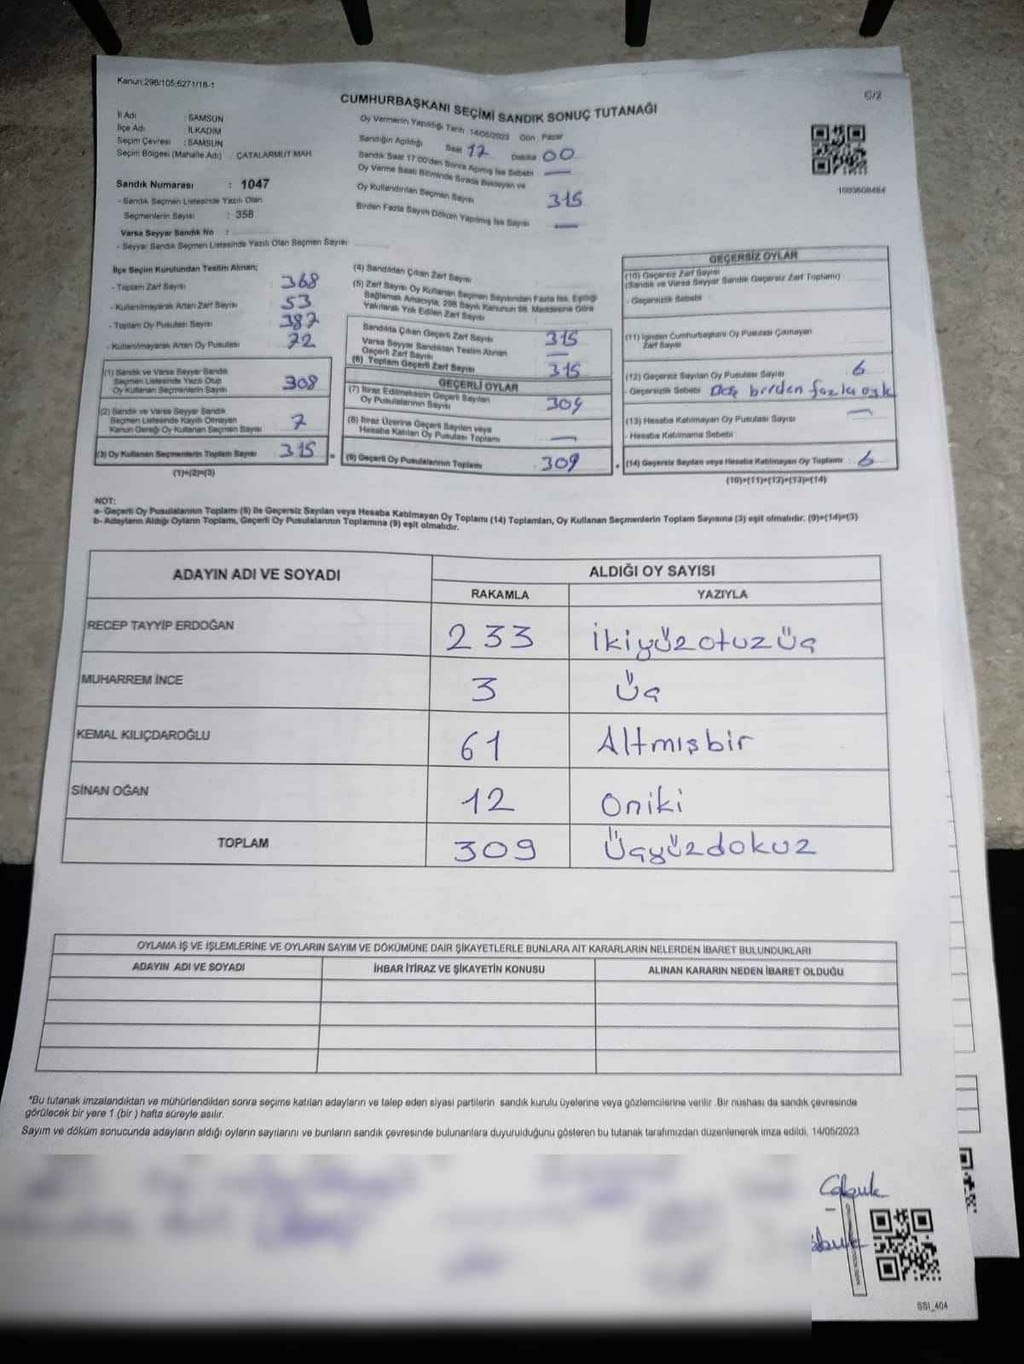 Kanun:298/105;6271/18-1
CUMHURBAŞKANI SEÇİMİ SANDIK SONUÇ TUTANAĞI
İl Adı : SAMSUN
İlçe Adı : İLKADIM
Seçim Çevresi : SAMSUN
Seçim Bölgesi (Mahalle Adı) : ÇATALARMUT MAH.
Sandık Numarası : 1047
- Sandık Seçmen Listesinde Yazılı Olan
Seçmenlerin Sayısı : 358
Varsa Seyyar Sandık No :
- Seyyar Sandık Seçmen Listesinde Yazılı Olan Seçmen Sayısı
Oy Vermenin Yapıldığı Tarih 14/05/2023 Gün Pazar
Sandığın Açıldığı Saat 17 Dakika 00
Sandık Saat 17:00'den Sonra Açılmış İse Sebebi —
Oy Verme Saati Bitiminde Sırada Bekleyen ve
Oy Kullandırılan Seçmen Sayısı 315
Birden Fazla Sayım Döküm Yapılmış İse Sayısı —
1000608484
İlçe Seçim Kurulundan Teslim Alınan;
- Toplam Zarf Sayısı 368
- Kullanılmayarak Artan Zarf Sayısı 53
- Toplam Oy Pusulası Sayısı 387
- Kullanılmayarak Artan Oy Pusulası 72
(1) Sandık ve Varsa Seyyar Sandık
Seçmen Listesinde Yazılı Olup
Oy Kullanan Seçmenlerin Sayısı 308
(2) Sandık ve Varsa Seyyar Sandık
Seçmen Listesinde Kayıtlı Olmayan
Kanun Gereği Oy Kullanan Seçmen Sayısı 7
(3) Oy Kullanan Seçmenlerin Toplam Sayısı 315
(1)+(2)=(3)
(4) Sandıktan Çıkan Zarf Sayısı
(5) Zarf Sayısı Oy Kullanan Seçmen Sayısından Fazla İse, Eşitliği
Sağlamak Amacıyla, 298 Sayılı Kanunun 98. Maddesine Göre
Yakılarak Yok Edilen Zarf Sayısı
Sandıkta Çıkan Geçerli Zarf Sayısı 315
Varsa Seyyar Sandıktan Teslim Alınan
Geçerli Zarf Sayısı —
(6) Toplam Geçerli Zarf Sayısı 315
GEÇERLİ OYLAR
(7) İtiraz Edilmeksizin Geçerli Sayılan
Oy Pusulalarının Sayısı 309
(8) İtiraz Üzerine Geçerli Sayılan veya
Hesaba Katılan Oy Pusulası Toplamı —
(9) Geçerli Oy Pusulalarının Toplamı 309
GEÇERSİZ OYLAR
(10) Geçersiz Zarf Sayısı
(Sandık ve Varsa Seyyar Sandık Geçersiz Zarf Toplamı)
- Geçersizlik Sebebi
(11) İçinden Cumhurbaşkanı Oy Pusulası Çıkmayan
Zarf Sayısı
(12) Geçersiz Sayılan Oy Pusulası Sayısı 6
- Geçersizlik Sebebi birden fazla
(13) Hesaba Katılmayan Oy Pusulası Sayısı —
- Hesaba Katılmama Sebebi
(14) Geçersiz Sayılan veya Hesaba Katılmayan Oy Toplamı 6
(10)+(11)+(12)+(13)=(14)
NOT:
a- Geçerli Oy Pusulalarının Toplamı (9) ile Geçersiz Sayılan veya Hesaba Katılmayan Oy Toplamı (14) Toplamları, Oy Kullanan Seçmenlerin Toplam Sayısına (3) eşit olmalıdır. (9)+(14)=(3)
b- Adayların Aldığı Oyların Toplamı, Geçerli Oy Pusulalarının Toplamına (9) eşit olmalıdır.
ADAYIN ADI VE SOYADI ALDIĞI OY SAYISI
RAKAMLA YAZIYLA
RECEP TAYYİP ERDOĞAN 233 İkiyüzotuzüç
MUHARREM İNCE 3 Üç
KEMAL KILIÇDAROĞLU 61 Altmışbir
SİNAN OĞAN 12 Oniki
TOPLAM 309 Üçyüzdokuz
OYLAMA İŞ VE İŞLEMLERİNE VE OYLARIN SAYIM VE DÖKÜMÜNE DAİR ŞİKAYETLERLE BUNLARA AİT KARARLARIN NELERDEN İBARET BULUNDUKLARI
ADAYIN ADI VE SOYADI İHBAR İTİRAZ VE ŞİKAYETİN KONUSU ALINAN KARARIN NEDEN İBARET OLDUĞU
*Bu tutanak imzalandıktan ve mühürlendikten sonra seçime katılan adayların ve talep eden siyasi partilerin sandık kurulu üyelerine veya gözlemcilerine verilir .Bir nüshası da sandık çevresinde
görülecek bir yere 1 (bir ) hafta süreyle asılır.
Sayım ve döküm sonucunda adayların aldığı oyların sayılarını ve bunların sandık çevresinde bulunanlara duyurulduğunu gösteren bu tutanak tarafımızdan düzenlenerek imza edildi. 14/05/2023
SSI_404